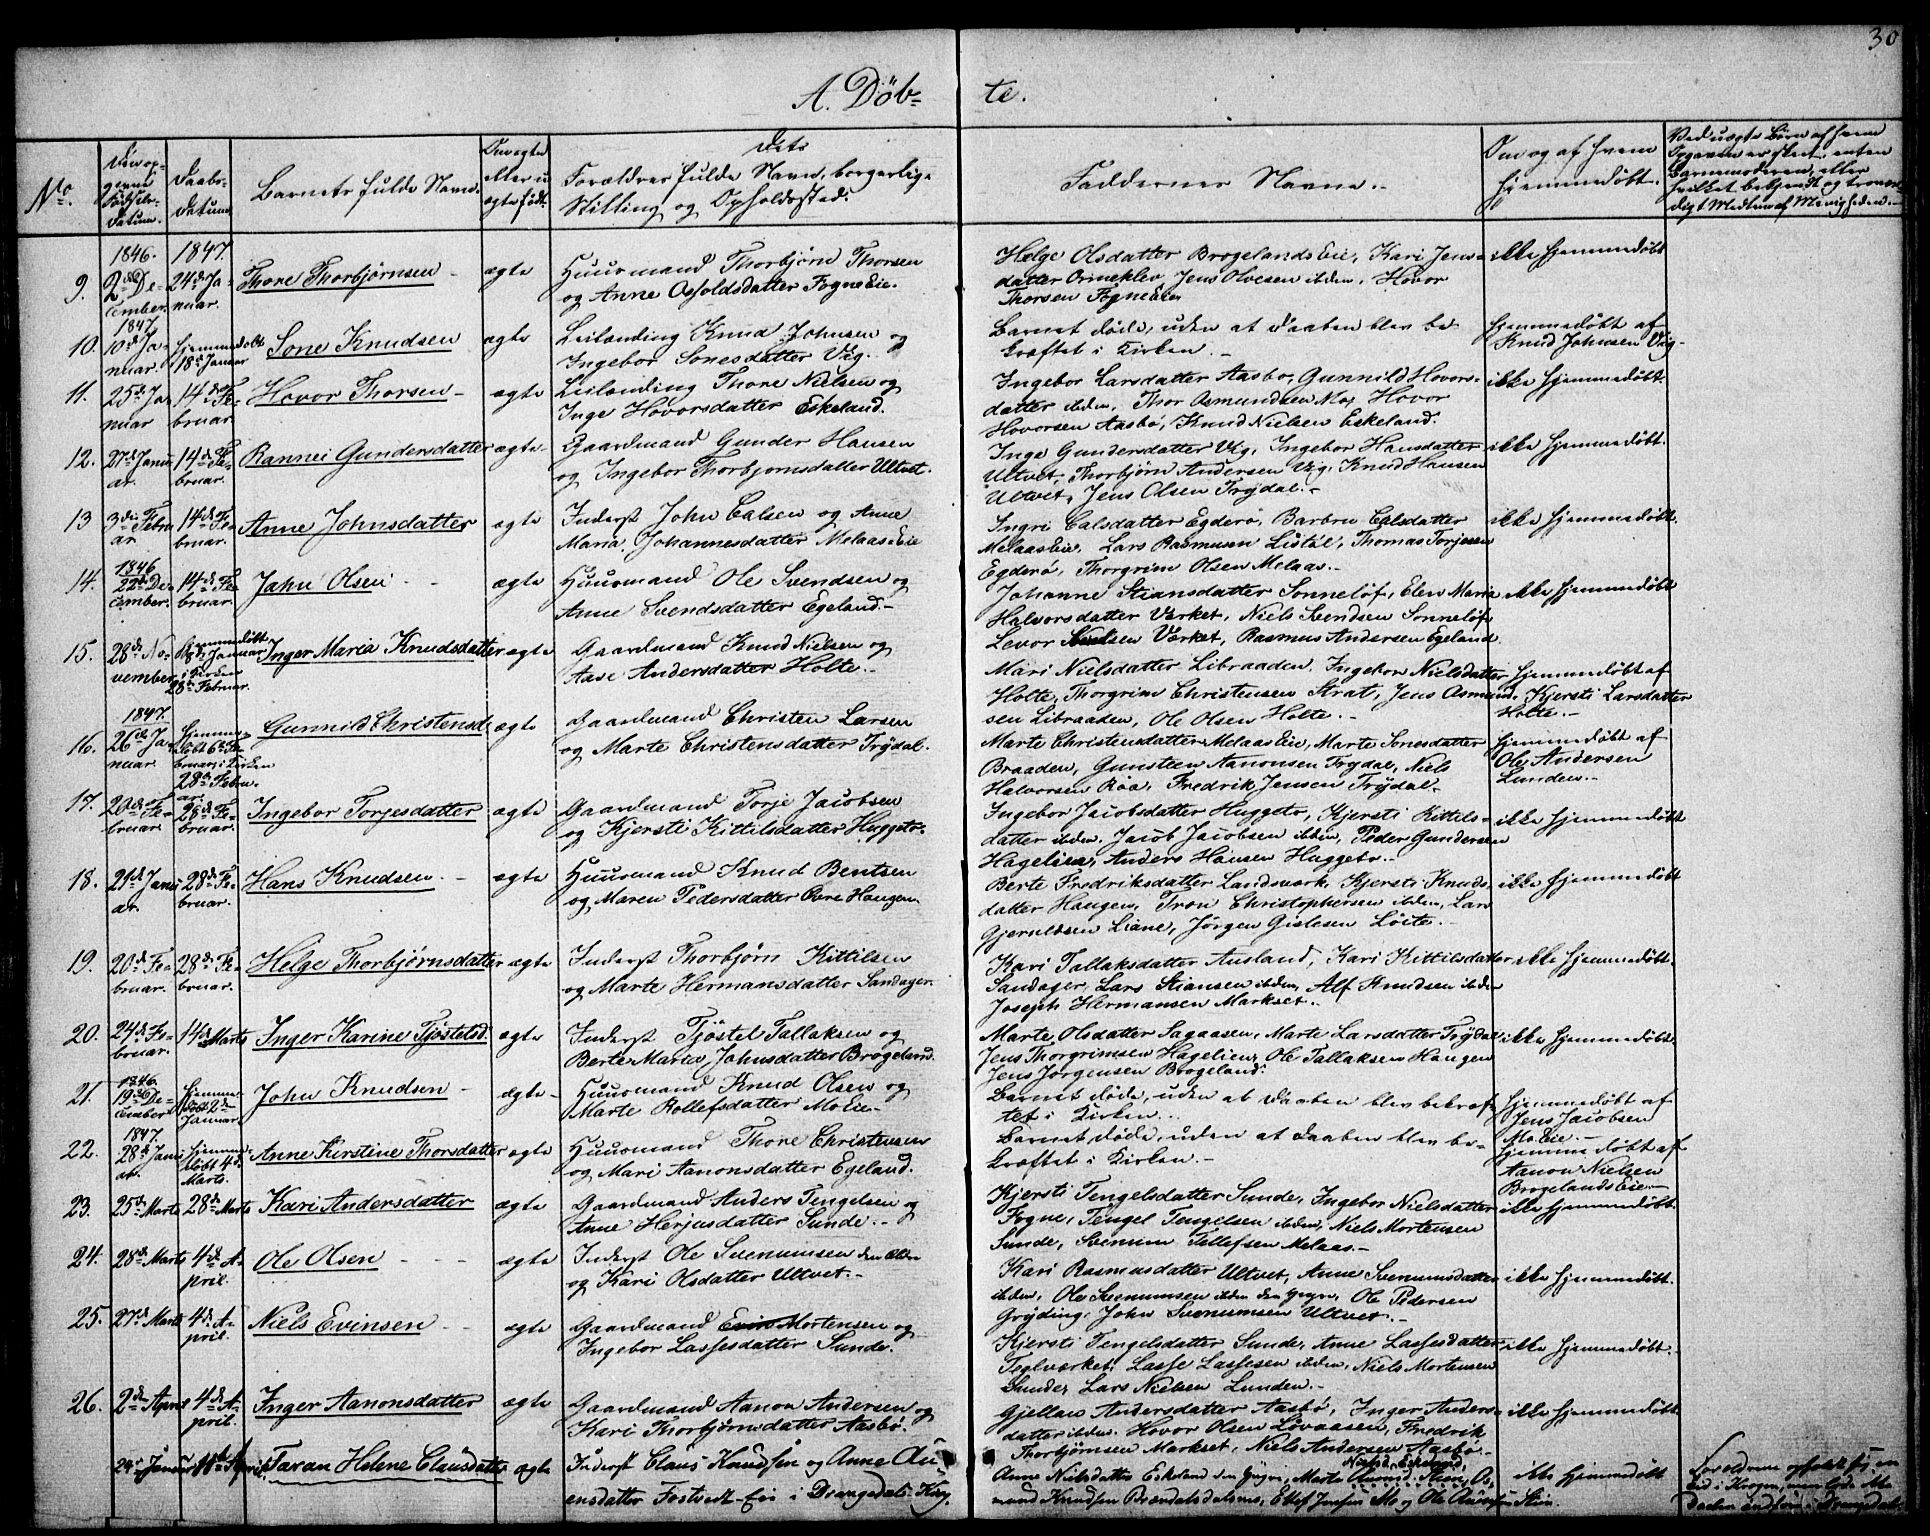 30
A. Døb- te.
No.
Den op-
givne
Fødsels-
datum.
Daabs-
datum.
Barnets fulde Navn.
Om ægte
eller u-
ægte født.
Dets
Forældres fulde Navn, borgerlige
Stilling og Opholdssted.
Faddernes Navne.
Om og af hvem
hjemmedøbt.
Ved uægte Børn af hvem
Opgaven er skeet, enten
Barnemoderen, eller
hvilket bekjendt og trovær-
digt Medlem af Menigheden.
9. 1846. 2den De-
cember. 1847. 24de Ja-
nuar. Thore Thorbjørnsen - ægte Huusmand Thorbjørn Thorsen
og Anne Osfoldsdatter FogneEie.
Helge Olsdatter BrogelandsEie, Kari Jens-
datter Ormeklev, Jens Olvesen ibdem, Hovor
Thorsen FogneEie
ikke hjemmedøbt
10. 1847 10de Ja-
nuar. hjemmedøbt
18de Januar Sone Knudsen ægte Leilænding Knud Johnsen og
Ingebor Sonesdatter Vig.
Barnet døde, uden at Daaben blev be-
kræftet i Kirken. -
hjemmedøbt af
Knud Johnsen Vig-
11. 25de Ja-
nuar 14de Fe-
bruar. Hovor Thorsen - ægte Leilænding Thore Nielsen og
Inge Hovorsdatter Eskeland.
Ingebor Larsdatter Aasbø, Gunnild Hovors-
datter ibdem, Thor Osmundsen Mo, Hovor
Hovorsen Aasbø, Knud Nielsen Eskeland.
ikke hjemmedøbt.
12. 27de Janu-
ar. 14de Fe-
bruar. Rannei Gundersdatter ægte Gaardmand Gunder Hansen
og Ingebor Thorbjørnsdatter Ultvet.
Inge Gundersdatter Vig, Ingebor Hansdatter
Ultvet, Thorbjørn Andersen Vig, Knud Hansen
Ultvet, Jens Olsen Trydal. -
ikke hjemmedøbt.
13 3die Febru
ar 14de Fe-
bruar. Anne Johnsdatter ægte Inderst John Calsen og Anne
Maria Johannesdatter MelaasEie
Ingri Calsdatter Egderø, Barbru Calsdatter
MelaasEie, Lars Rasmusen Listøl, Thomas Torjesen
Egderø, Thorgrim Olsen Melaas. -
ikke hjemmedøbt.
14. 1846 22de De-
cember. 14de Fe-
bruar. Jahn Olsen - - ægte Huusmand Ole Svendsen og
Anne Svendsdatter Egeland. -
Johanne Stiansdatter Sonneløf, Elen Maria
Halvorsdatter Værket, Niels Svendsen Sonneløf
Levor Værket, Rasmus Andersen Egeland
ikke hjemmedøbt
15. 28de No-
vember hjemmedøbt
Januar
i Kirken
28de Februar. Inger Maria Knudsdatter ægte Gaardmand Knud Nielsen og
Aase Andersdatter Holte. -
Mari Nielsdatter Libraaden, Ingebor Nielsdatter
Holte, Thorgrim Christensen Strat, Jens Osmund-
sen Libraaden, Ole Olsen Holte. -
hjemmedøbt af
Kjersti Larsdatter
Holte. -
16. 1847. 26de Ja-
nuar. hjemme-
døbt 6te Fe-
bruar, i Kirken
28de Febru-
ar. Gunnild Christensd. ægte Gaardmand Christen Larsen
og Marte Christensdatter Trydal.
Marte Christensdatter MelaasEie, Marte Sonesdatter
Braaden, Gunsten Aanonsen Trydal, Niels
Halvorsen Røa, Fredrik Jensen Trydal. -
hjemmedøbt af
Ole Andersen
Lunden. -
17. 20de Fe-
bruar 28de Fe-
bruar. Ingebor Torjesdatter ægte Gaardmand Torje Jacobsen
og Kjersti Kittilsdatter Huggetø.
Ingebor Jacobsdatter Huggetø, Kjersti Kittils-
datter ibdem. Jacob Jacobsen ibdem, Peder Gundersen
Hagelien, Anders Hansen Huggetø. -
ikke hjemmedøbt
18. 21de Janu-
ar. 28de Fe-
bruar. Hans Knudsen. - ægte Huusmand Knud Bentsen
og Maren Pedersdatter Haugen
Berte Fredriksdatter Landsværk, Kjersti Knuds-
datter Haugen, Tron Christophersen ibdem, Lars
Gjeruldsen Liane, Jørgen Gislesen Løite. -
ikke hjemmedøbt
19. 20de Fe-
bruar. 28de Fe-
bruar. Helge Thorbjørnsdatter ægte Inderst Thorbjørn Kittilsen
og Marte Hermansdatter Sandager.
Kari Tallaksdatter Ausland, Kari Kittilsdatter
Sandager, Lars Stiansen ibdem, Alf Knudsen ibdem
Joseph Hermansen Markset. -
ikke hjemmedøbt.
20. 24de Fe-
bruar. 14de Marts Inger Karine Tjøstelsd. ægte Inderst Tjøstel Tallaksen og
Berte Maria Johnsdatter Brøgeland.
Marte Olsdatter Sagaasen, Marte Larsdatter Trydal
Jens Thorgrimsen Hagelien, Ole Tallaksen Haugen
Jens Jørgensen Brøgeland.
ikke hjemmedøbt.
21. 1846. 19de De-
cember hjemme-
døbt 2de
Januar. John Knudsen - ægte - Huusmand Knud Olsen og
Marte Rollefsdatter MoEie -
Barnet døde, uden at Daaben blev bekræf-
tet i Kirken. -
hjemmedøbt af
Jens Jacobsen
MoEie. -
22. 1847. 28de Janu-
ar. hjemme-
døbt 4de
Marts. Anne Kirstine Thorsdatter ægte Huusmand Thore Christensen
og Mari Aanonsdatter Egeland.
Barnet døde, uden at Daaben blev be-
kræftet i Kirken. -
hjemmedøbt af
Aanon Nielsen
BrogelandsEie -
23. 25de Marts 28de Marts Kari Andersdatter ægte Gaardmand Anders Tengelsen og
Anne Herjusdatter Sunde. -
Kjersti Tengelsdatter Sunde, Ingebor Nielsdatter
Fogne, Tengel Tengelsen ibdem, Niels Mortensen
Sunde, Svenum Tellefsen Melaas. -
ikke hjemmedøbt.
24. 28de Marts 4de A-
pril. Ole Olsen - - - ægte Inderst Ole Svenumsen den Ældre
og Kari Olsdatter Ultvet. -
Kari Rasmusdatter Ultvet, Anne Svenumsdatter
ibdem, Ole Svenumsen ibdem den Yngre, Ole Pedersen
Gryding, John Svenumsen Ultvet. -
ikke hjemmedøbt.
25. 27de Marts 4de A-
pril. Niels Evinsen - - ægte Gaardmand Evin Mortensen og
Ingebor Lassesdatter Sunde.
Kjersti Tengelsdatter Sunde, Anne Lassesdatter
Teglværket, Lasse Lassesen ibdem, Niels Mortensen
Sunde, Lars Nielsen Lunden. -
ikke hjemmedøbt.
26. 2den April 4de A-
pril. Inger Aanonsdatter ægte Gaardmand Aanon Andersen og
Kari Thorbjørnsdatter Aasbø.
Gjellaus Andersdatter Aasbø, Inger Anders-
datter ibdem. Hovor Olsen Lovaasen, Fredrik
Thorbjørnsen Markset, Niels Andersen Aasbø. -
ikke hjemmedøbt
24de Januar 11te April Taran Helene Clausdatter ægte Inderst Claus Knudsen og Anne Au-
ensdatter Fostvedt-Eie i Drangedals-
Anne Nielsdatter Eskeland den Yngre, Marte Stein, Os-
mund Knudsen Brændalsdalsmo, Ellef Jensen Mo og Ole Stein
ikke hjemmedøbt
Forældrene opholdt sig en
Tid i Krogen, men lod
Daaben i Drangedal.